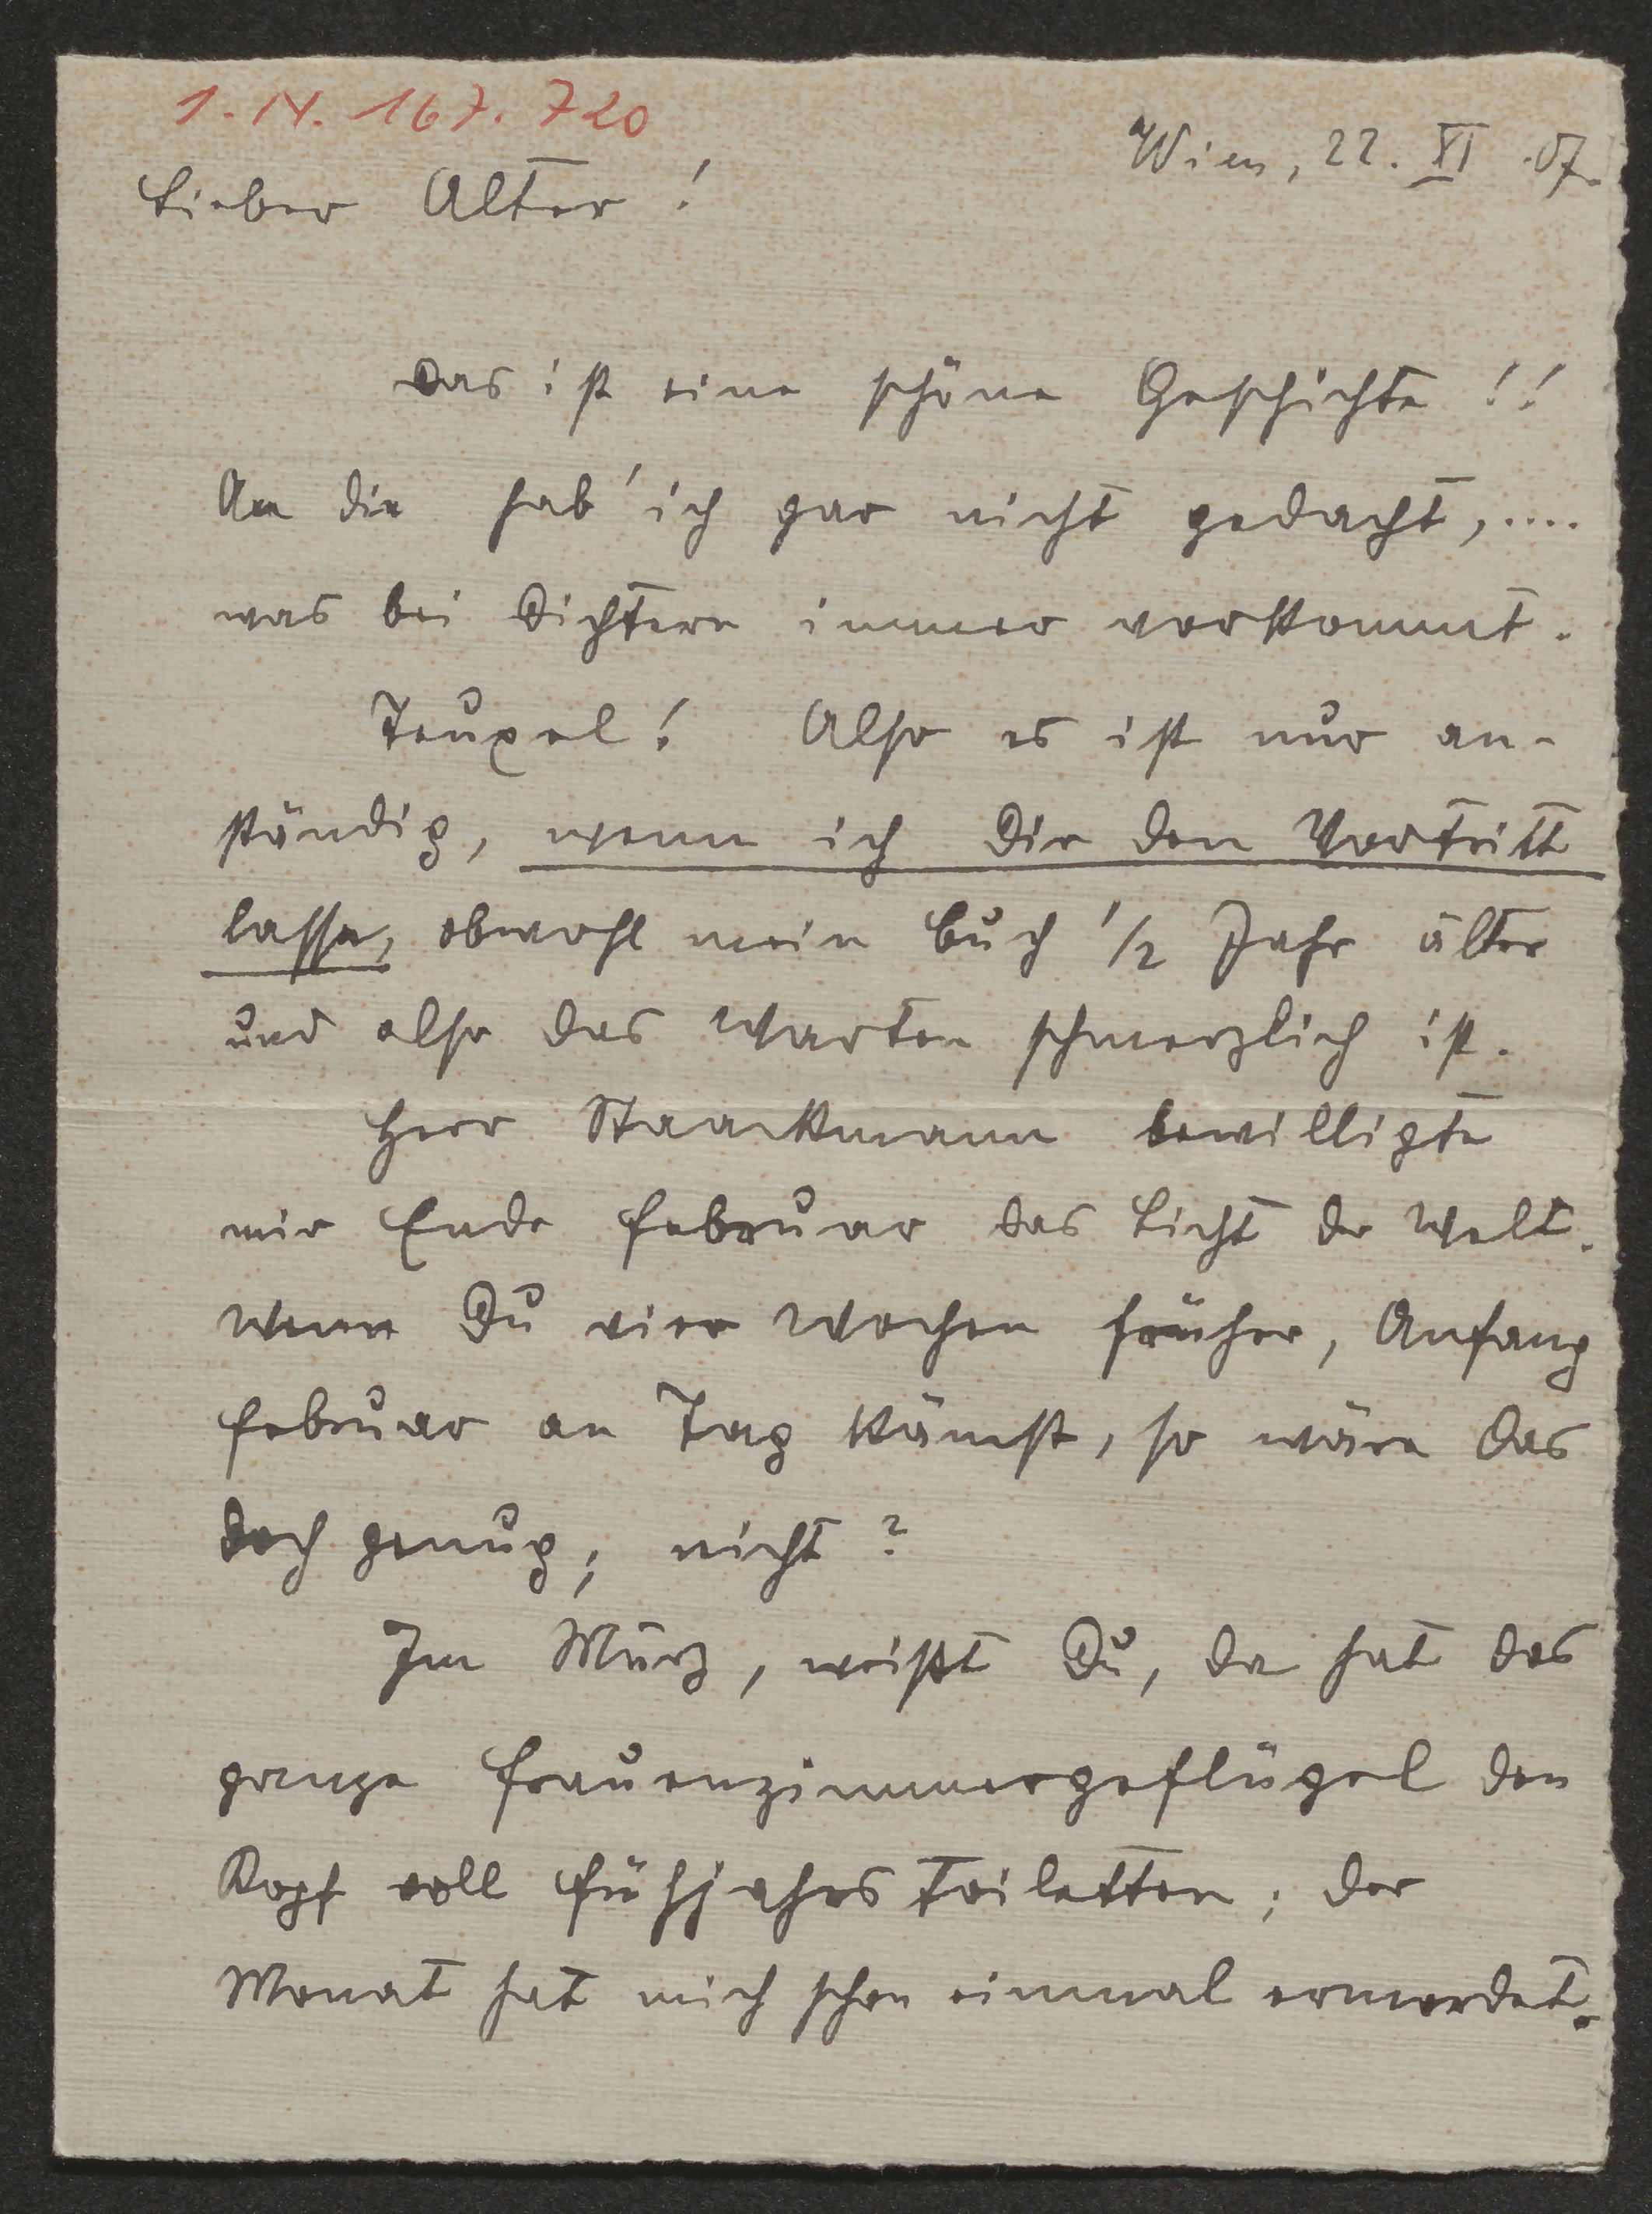 1. N. 167. 720
Wien, 22. XI .07.
Lieber Alter!
Das ist eine schöne Geschichte!!
An die hab' ich gar nicht gedacht, ....
was bei Dichtern immer vorkommt.
Teuxel! Also es ist nur an-
ständig, wenn ich Dir den Vortritt
lasse, obwohl mein Buch 1/2 Jahr älter
und also das Warten schmerzlich ist.
Herr Staackmann bewilligte
mir Ende Februar das Licht der Welt.
Wenn Du vier Wochen früher, Anfang
Februar an Tag kämst, so wäre das
doch genug; nicht?
Im März, weißt Du, da hat das
ganze Frauenzimmergeflügel den
Kopf voll Fühjahrstoiletten; der
Monat hat mich schon einmal ermordet.